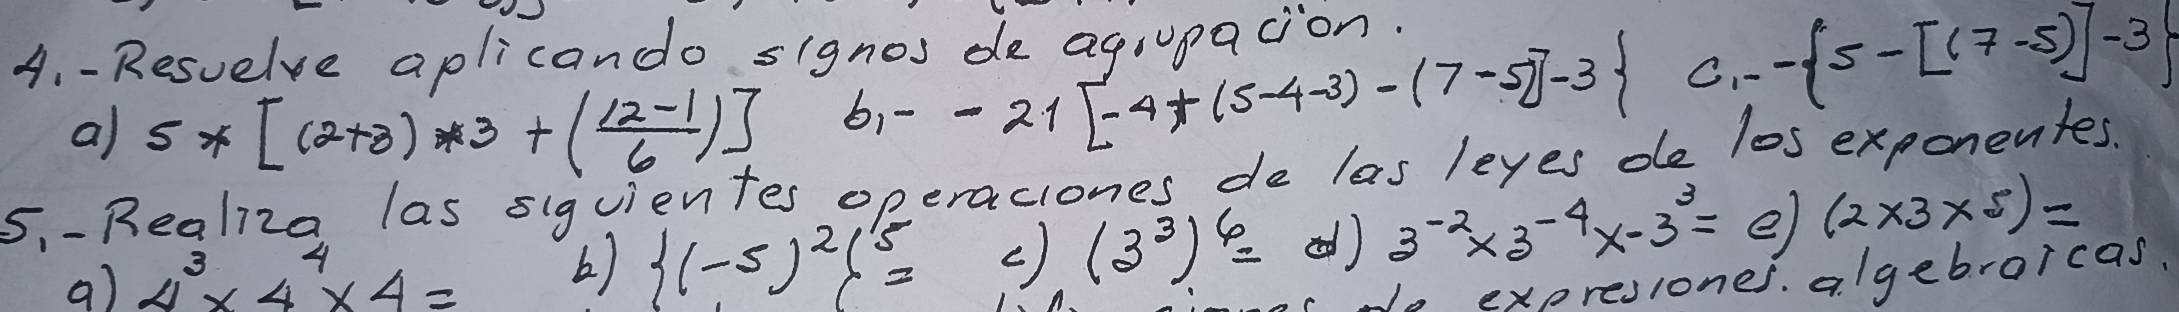 4.-Resuelve aplicando signos de agrupación.
a) 5 * [(2+3) * 3 + (12-1/6)] b,- - 21 [-4+(5-4-3)-(7-5)]-3} c,- -{5-[(7-5)]-3}
5,-Realiza las siguientes operaciones de las leyes de los exponentes.
a) 4³ x 4⁴ x 4 = b) {(-5)²{⁵ = c) (3³)⁶ = d) 3⁻² x 3⁻⁴ x -3³ = e) (2x3x5) =
de expresiones. algebraicas.